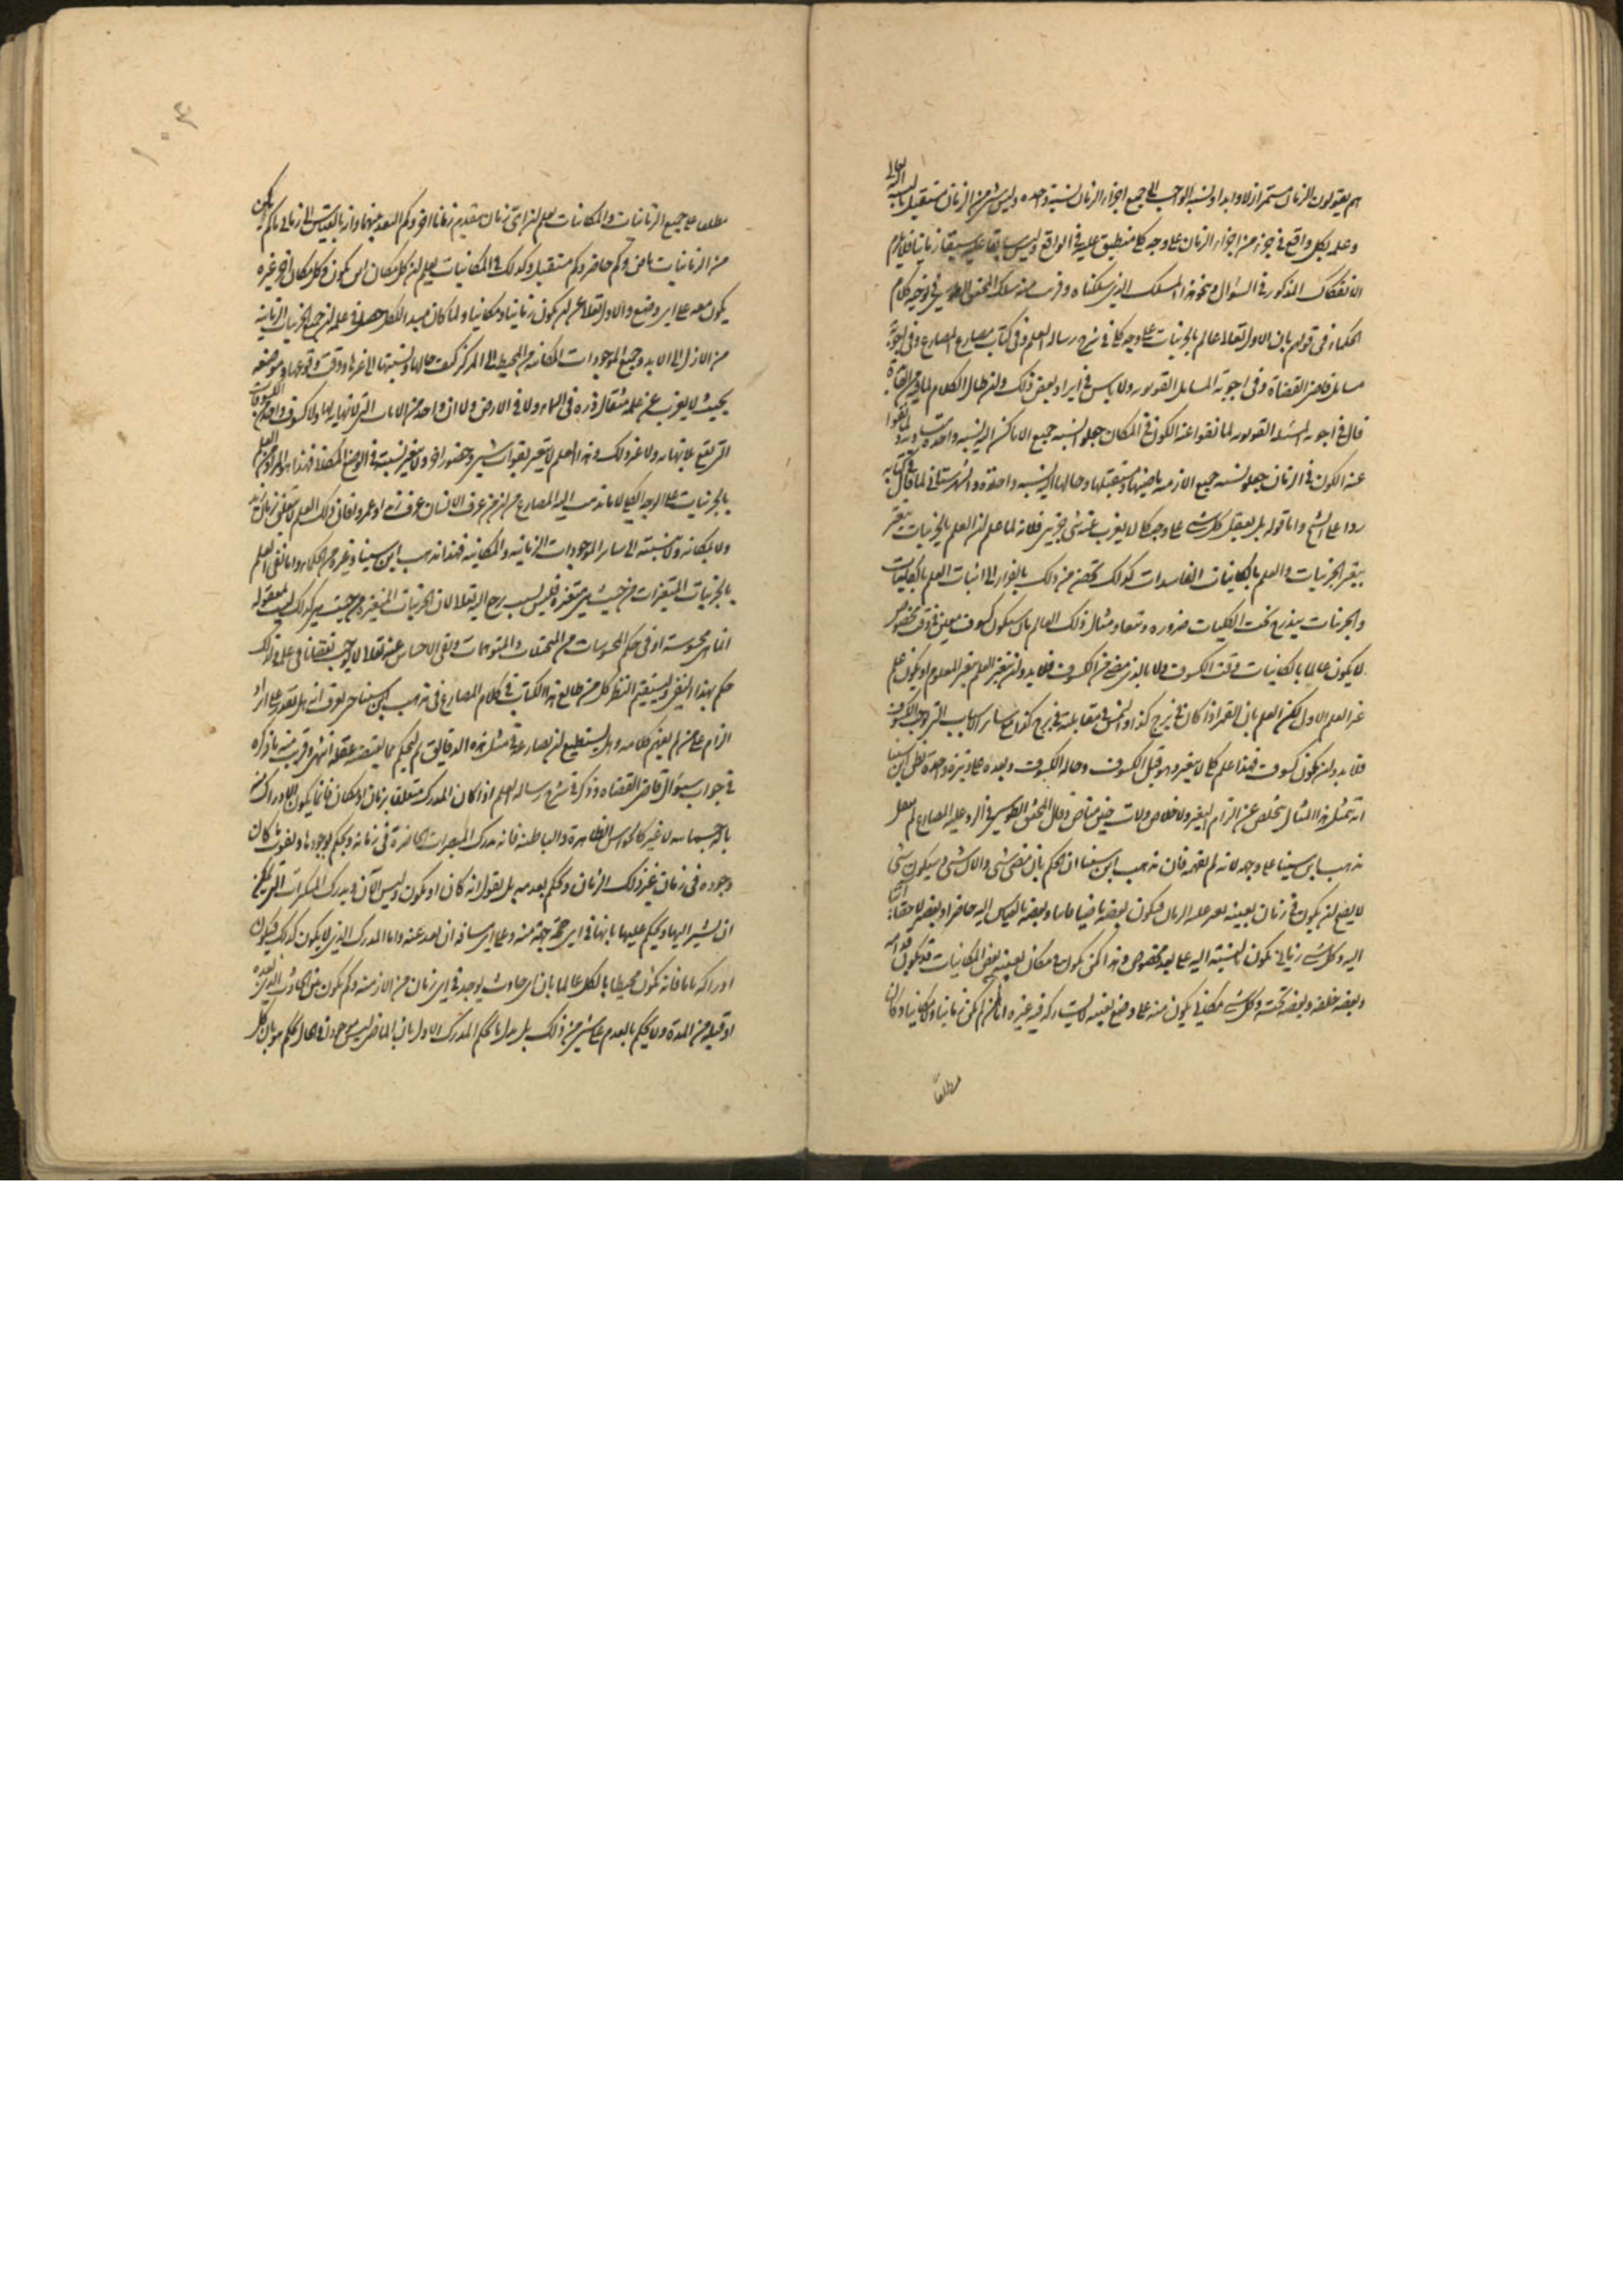 هم يقولون الزمان مستمر ازلا وابدا ونسبة الواجب الى جميع اجزاء الزمان نسبة واحدة وليس شئ من الزمان مستقبل بالنسبة اليه تعالى
وعلمه بكل واقع في جزء من اجزاء الزمان على وجه كلي منطبق عليه في الواقع وليس سابقا عليه سبقا زمانيا فلا يلزم
الانفكاك المذكور في السؤال ونحو هذا المسلك الذي سلكناه وقريب منه مسلك المحقق الطوسي في توجيه كلام
الحكماء في قولهم بان الاول تعالى عالم بالجزئيات على وجه كلي في شرح رسالة العلم وفي كتاب مصارع المصارع وفي اجوبة
مسائل قاضي القضاة وفي اجوبة المسائل القونوية ولا باس في ايراد بعض ذلك وان طال الكلام
قال في اجوبة المسئلة القونوية لما نفوا عنه الكون في المكان جعلوا نسبة جميع الاماكن اليه نسبة واحدة متساوية ولما نفوا
عنه الكون في الزمان جعلوا نسبة جميع الازمنة ماضيها ومستقبلها وحالها اليه نسبة واحدة والشهرستاني لما قال في كتابه
ردا على الشيخ واما قوله بل يعقل كل شئ على وجه كلي لا يعزب عنه شئ جزئي فلانه لما علم ان العلم بالجزئيات يتغير
بتغير الجزئيات والعلم بالكائنات الفاسدات كذلك تحصن من ذلك بالفرار الى اثبات العلم بالكليات
والجزئيات يندرج تحت الكليات ضرورة وتبعا ومثال ذلك العالم بان سيكون كسوف معين في وقت مخصوص
لا يكون عالما بالكائنات وقت الكسوف ولا بالذي مضى من الكسوف فلا بد وان يتغير العلم بتغير المعلوم او يكون علم
غير العلم الاول لكن العلم بان القمر اذا كان في برج كذا والشمس في مقابلته في برج كذا مع سائر الاسباب التي توجب الكسوف
فلا بد وان يكون كسوف فهذا علم كلي لا يتغير وهو قبل الكسوف وحالة الكسوف وبعده على وتيرة واحدة فظن ابن سينا
انه بمثل هذا المثال يتخلص عن الزام التغير ولا خلاص ولات حين مناص وقال المحقق الطوسي في الرد عليه المصارع لم ينقل
مذهب ابن سينا على وجهه لانه لم يفهمه فان مذهب ابن سينا ان الحكم بان مضى شئ والان شئ وسيكون شئ
لا يصح الا لمن يكون في زمان بعينه فيكون بعضه ماضيا وبعضه بالقياس اليه حاضرا وبعضه لاحقا
اليه وكل شئ زماني يكون بالنسبة اليه على بعد مخصوص وهذا كمن يكون في مكان بعينه بعض المكانيات قد يكون قدامه
وبعضه خلفه وبعضه تحته وكل شئ مكاني يكون منه على وضع بعينه لا يشاركه فيه غيره اما من لم يكن زمانيا ولا مكانيا وكان
مطلعا
١٠٤
مطلعا على جميع الزمانيات والمكانيات يعلم ان اي زمان متقدم زمانا اخر وكم البعد بينهما واذا بالقياس الى زماني ما كم يكون
من الزمانيات ماض وكم حاضر وكم مستقبل وكذلك في المكانيات يعلم ان كل مكان اين يكون وكل مكان اخر غيره
يكون معه على اي وضع والاول تعالى عن ان يكون زمانيا ومكانيا ولما كان مبدأ الكل حصل في علمه ان جميع الجزئيات الزمانية
من الازل الى الابد وجميع الموجودات المكانية من المحيط الى المركز كيف حالها ونسبتها الى غيرها ووقت وقوعها وموضعه
بحيث لا يعزب عن علمه مثقال ذرة في السماء ولا في الارض ولا ان واحد من الانات التي لا نهاية لها ولا كسوف واحد من الكسوفات
التي تقع بلا نهاية ولا غير ذلك وهذا العلم لا يتغير بفوات شئ وحضور اخر ولا يتغير نسبته في الوضع المكاني فهذا هو المراد من العلم
بالجزئيات على الوجه الكلي لا ما ذهب اليه المصارع من ان من عرف الانسان عرف زيدا وعمروا فان ذلك العلم لا يتعلق بزمان زيد
ولا بمكانه ولا بنسبته الى سائر الموجودات الزمانية والمكانية فهذا مذهب ابن سينا وغيره من الحكماء واما نفي العلم
بالجزئيات المتغيرات من حيث هي متغيرة فليس بسبب يرجع اليه تعالى لان الجزئيات المتغيرة من حيث هي كذلك ليست معقولة
انما هي محسوسة او في حكم المحسوسات من المتخيلات والمتوهمات ونفي الاحساس عنه تعالى لا يوجب نقصانا في علمه ولذلك
حكم بهذا النفي وليستقيم النظر كل من طالع هذا الكتاب في كلام المصارع في مذهب ابن سينا حتى يعرف انه هل يقدر على ايراد
الزام على من لم يفهم كلامه وهل يستطيع ان يصارعه في مثل هذه الدقائق ثم ليحكم بما يقتضيه عقله انتهى وقريب منه ما ذكره
في جواب سؤال قاضي القضاة وذكر في شرح رسالة العلم اذا كان المدرك متعلقا بزمان او مكان فانما يكون الادراك منه
بالة جسمانية لا غير كالحواس الظاهرة والباطنة فانه يدرك المتغيرات الحاضرة في زمانه ويحكم بوجودها ويفوته ما كان
وجوده في زمان غير ذلك الزمان ويحكم بعدمه بل يقول انه كان او يكون وليس الان ويدرك المتكثرات التي يمكن
ان يشير اليها ويحكم عليها بانها في اي جهة منه وعلى اي مسافة ان بعد عنه واما المدرك الذي لا يكون كذلك فيكون
ادراكه تاما فانه يكون محيطا بالكل عالما بان اي حادث يوجد في اي زمان من الازمنة وكم يكون بينه وبين الحادث الذي بعده
او قبله من المدة ولا يحكم بالعدم على شئ من ذلك بل بدل ما يحكم المدرك الاول بان الماضي ليس موجودا في الحال يحكم هو بان كل